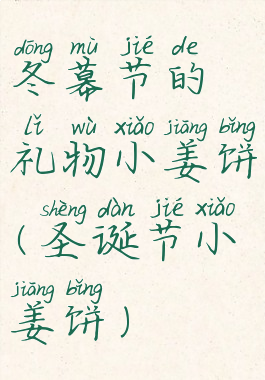 dōng mù jié de
冬幕节的
lǐ wù xiǎo jiāng bǐng
礼物小姜饼
shèng dàn jié xiǎo
(圣诞节小
jiāng bǐng
姜饼)